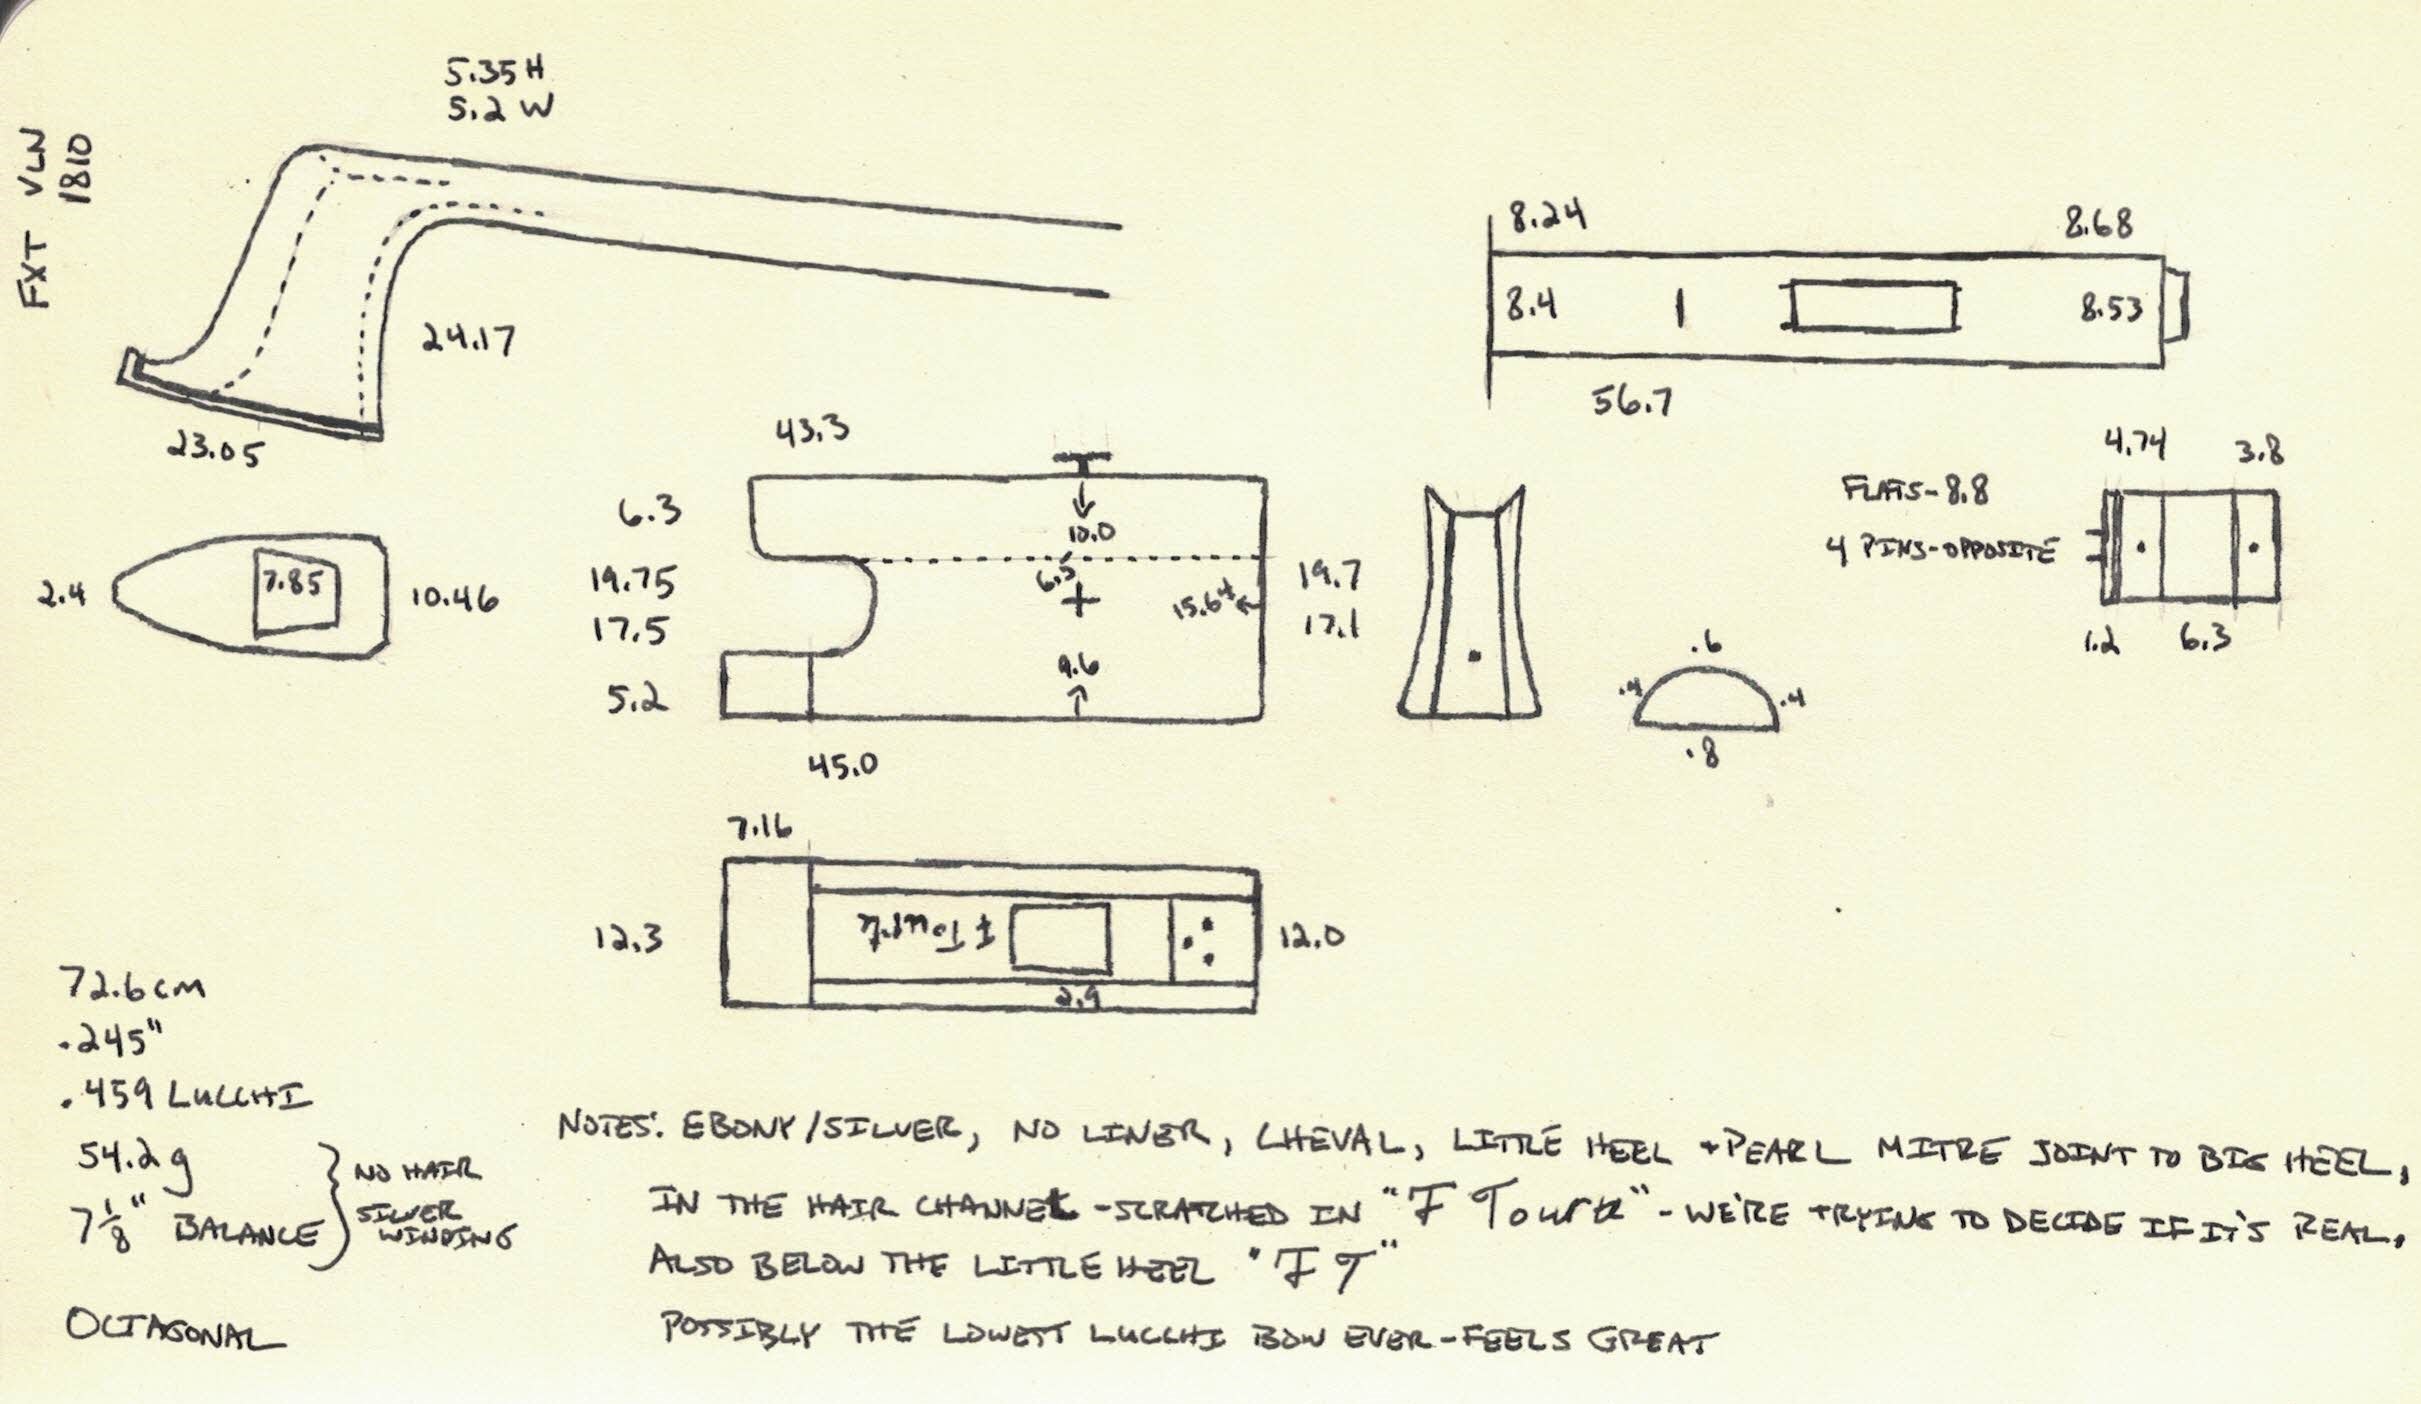 FXT VLN
1810
5.35 H
5.2 W
24.17
23.05
8.24
8.68
8.4
8.53
56.7
2.4
7.85
10.46
43.3
6.3
19.75
17.5
5.2
10.0
6.5
15.6
9.6
19.7
17.1
45.0
.6
.4
.4
.8
FLATS-8.8
4 PINS-OPPOSITE
4.74
3.8
1.2
6.3
7.16
12.3
F Tourte
2.9
12.0
72.6 cm
.245"
.459 LUCCHI
54.2g
7 1/8" BALANCE
NO HAIR
SILVER
WINDING
OCTAGONAL
NOTES: EBONY/SILVER, NO LINER, CHEVAL, LITTLE HEEL + PEARL MITRE JOINT TO BIG HEEL,
IN THE HAIR CHANNEL - SCRATCHED IN "F Tourte" - WE'RE TRYING TO DECIDE IF IT'S REAL.
ALSO BELOW THE LITTLE HEEL "FT"
POSSIBLY THE LOWEST LUCCHI BOW EVER - FEELS GREAT